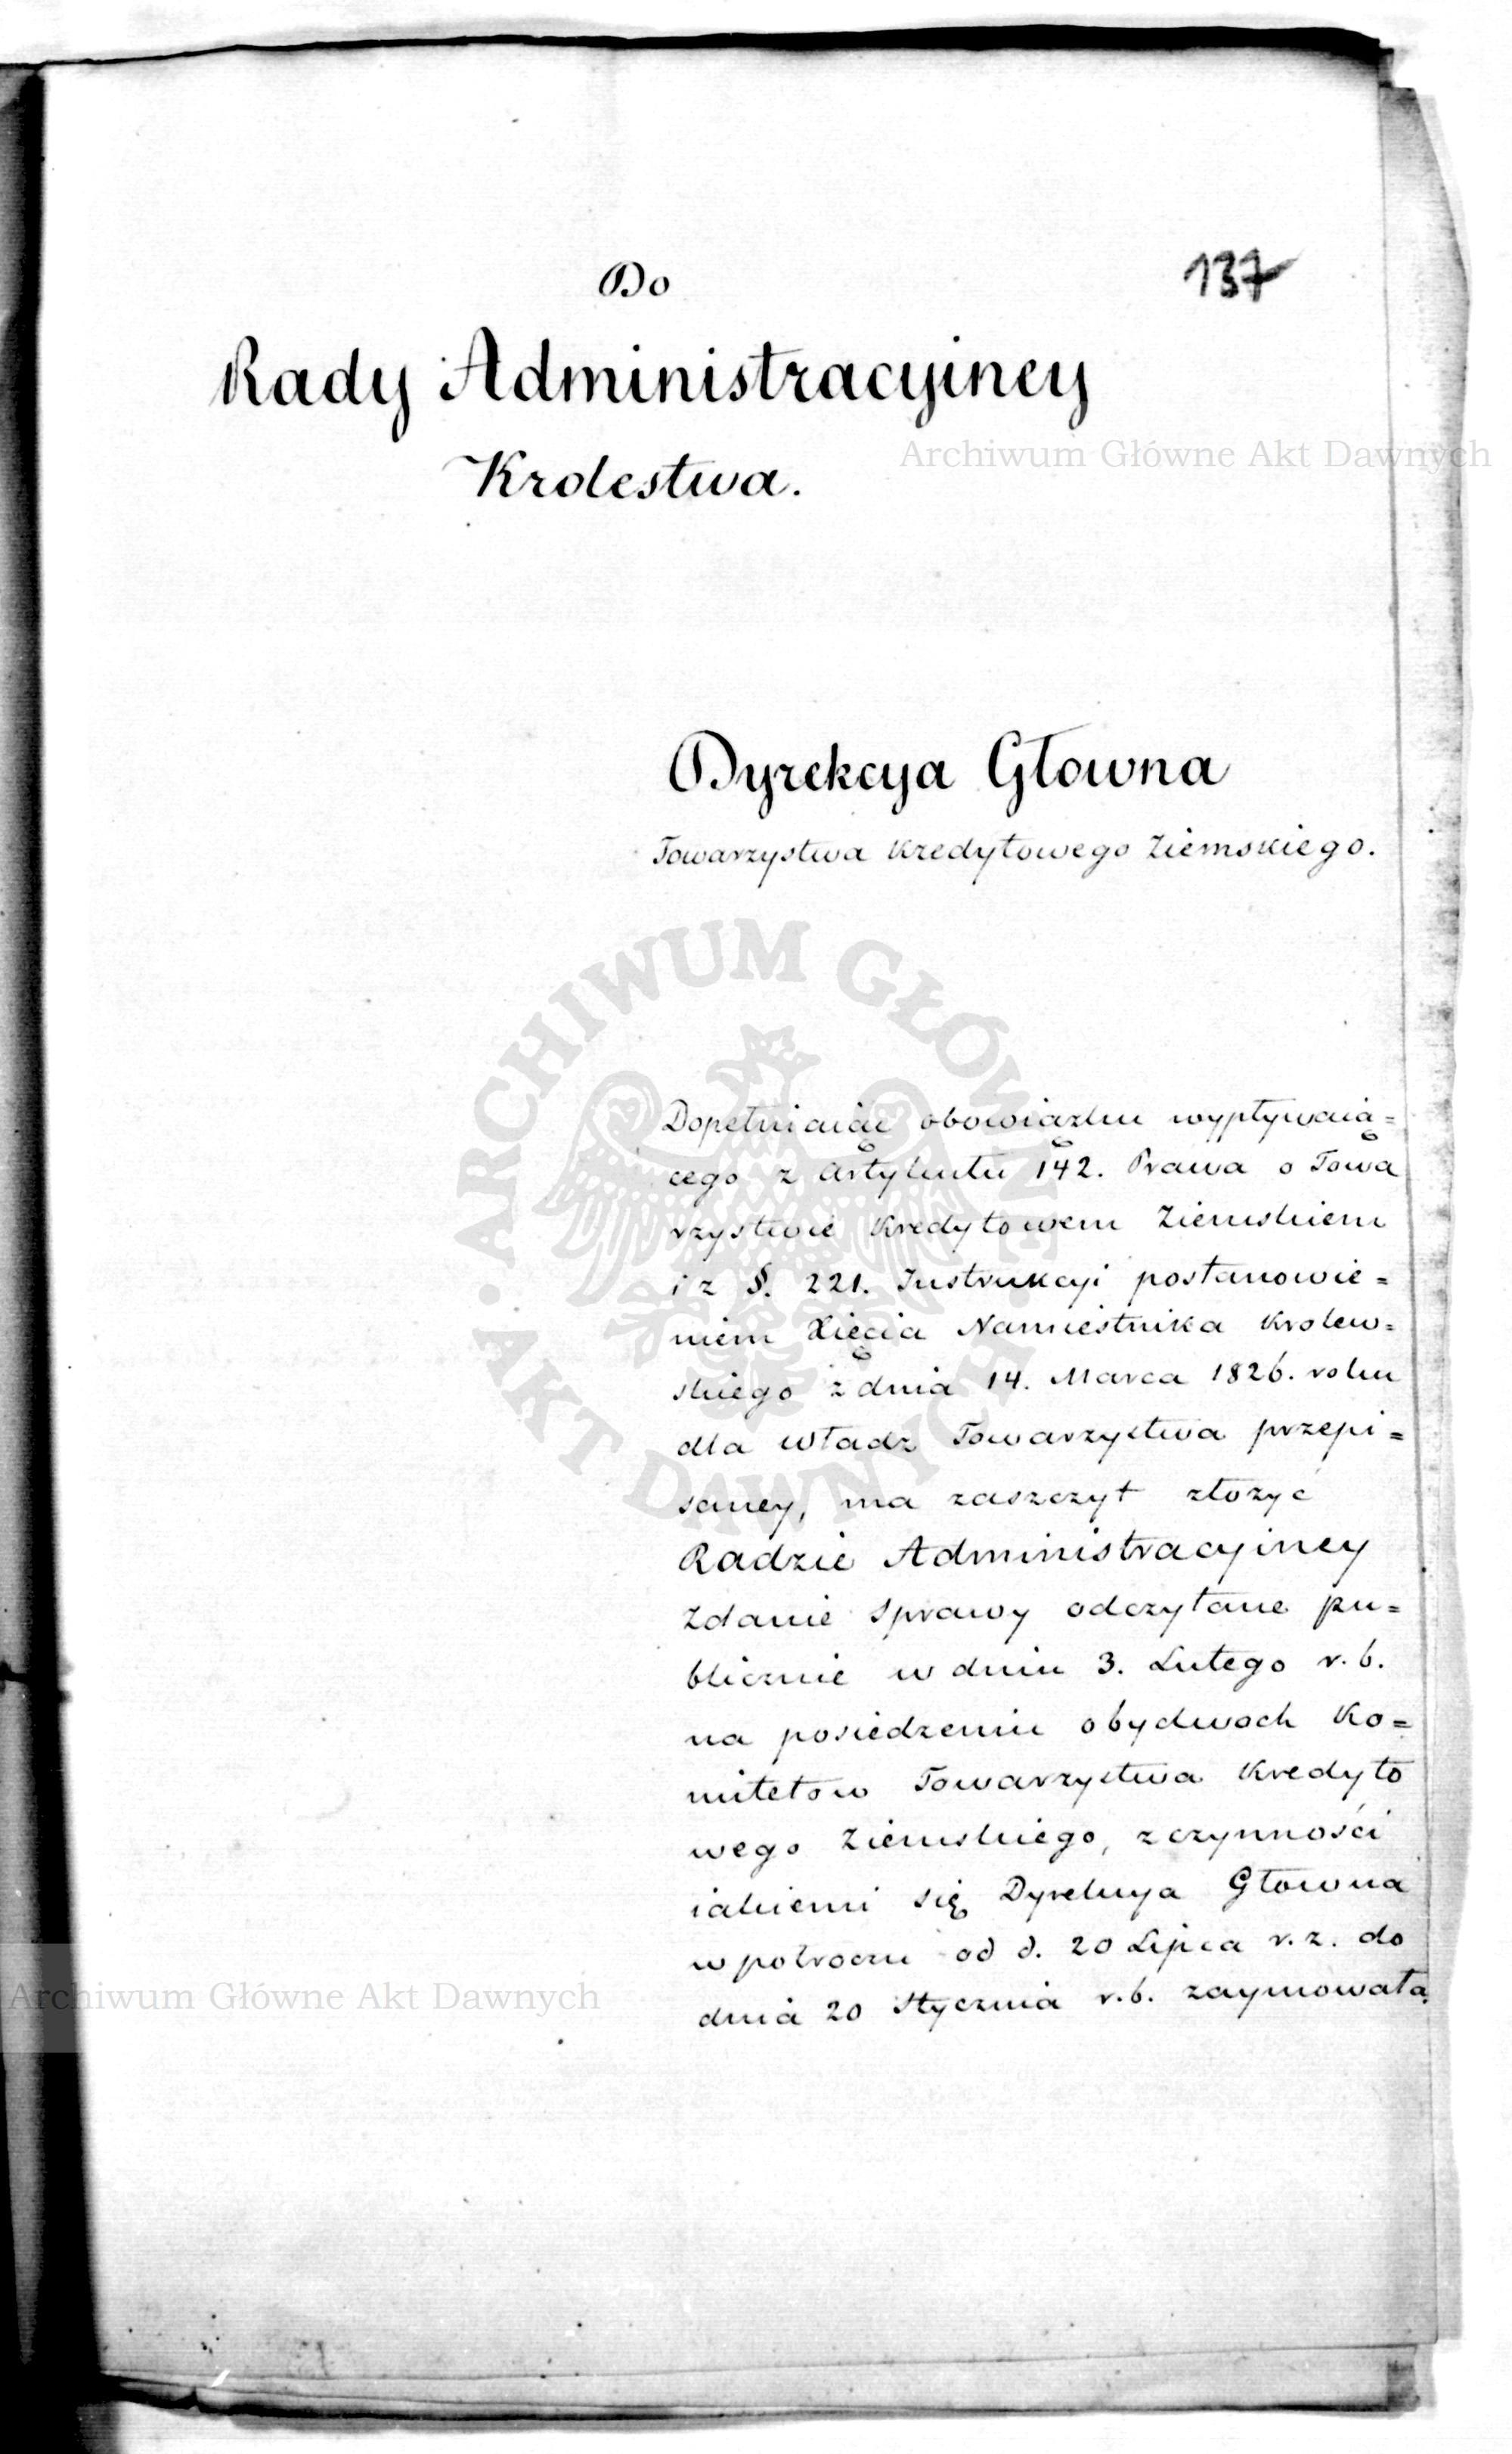 137
Do
Rady Administracyiney
Krolestwa.
Archiwum Główne Akt Dawnych
Dyrekcya Głowna
Towarzystwa Kredytowego Ziemskiego.
ARCHIWUM GŁÓWNE • AKT DAWNYCH •
Dopełniaiąc obowiązku wypływaią=
cego z Artykułu 142. Prawa o Towa
rzystwie Kredytowem Ziemskiem
i z §. 221. Instrukcyi postanowie=
niem Xięcia Namiestnika Krolew=
skiego z dnia 14. Marca 1826. roku
dla Władz Towarzystwa przepi=
saney, ma zaszczyt złożyć
Radzie Administracyiney
Zdanie Sprawy odczytane pu=
blicznie w dniu 3. Lutego r. b.
na posiedzeniu obydwoch Ko=
mitetow Towarzystwa Kredyto
wego Ziemskiego, z czynności
iakiemi się Dyrekcya Głowna
w połroczu od d. 20 Lipca r. z. do
dnia 20 Stycznia r. b. zaymowała
Archiwum Główne Akt Dawnych